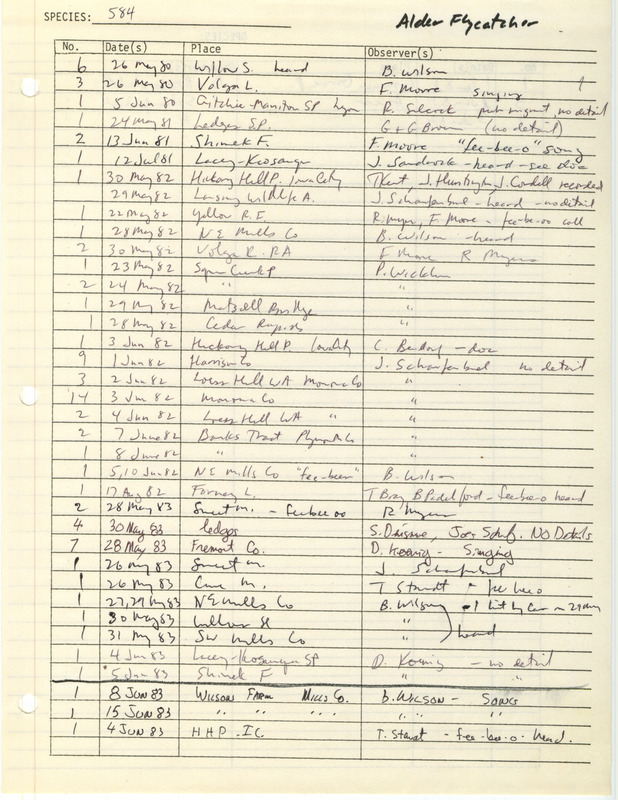 SPECIES: 584 Alder Flycatcher
No. Date(s) Place Observer(s)
6 26 May 80 Willow S. heard B. Wilson
3 26 May 80 Volga L. F. Moore singing
1 5 Jun 80 Gitchie-Manitou SP Lyon R. Silcock prob migrant, no detail
1 24 May 81 Ledges S.P. G + G Brown (no detail)
2 13 Jun 81 Shimek F. F. Moore "fee-bee-o" song
1 12 Jul 81 Lacey-Keosauqua J. Sandrock - heard - see doc
1 30 May 82 Hickory Hill P. Iowa City T Kent, J. Huntington, J. Cordell recorded
29 May 82 Lansing Wildlife A. J. Scharfenbul - heard - no detail
1 22 May 82 Yellow R.F. R. Myers, F. Moore - fee-be-oo call
1 28 May 82 NE Mills Co B. Wilson - heard
2 30 May 82 Volga R. RA F Moore R Myers
1 23 May 82 Squaw Creek P P. Wickham
2 24 May 82 " "
1 29 May 82 Matsell Bridge "
1 28 May 82 Cedar Rapids "
1 3 Jun 82 Hickory Hill P. locality C. Bendorf - doc
9 1 Jun 82 Harrison Co J. Scharfenbul no detail
3 2 Jun 82 Loess Hill WA Monona Co "
14 3 Jun 82 Monona Co "
2 4 Jun 82 Loess Hill WA " "
2 7 June 82 Banks Tract Plymouth Co "
1 8 June 82 " "
1 5,10 Jun 82 NE Mills Co "fee-beeo" B. Wilson
1 17 Aug 82 Forney L. T Bray B Padelford - fee-bee-o heard
2 28 May 83 Sweet M. - feebeoo R Myers
4 30 May 83 ledges S. Dinsmore, Joes Schuf. NO Details
7 28 May 83 Fremont Co. D. Koenig - Singing
1 26 May 83 Sweet M. J. Scharfenbul
1 26 May 83 Cone M. T Staudt - fee beeo
1 27,29 May 83 NE Mills Co B. Wilson - 1 hit by car on 29 May
1 30 May 83 Willow Sl "
1 31 May 83 SW Mills Co " heard
1 4 Jun 83 Lacey-Keosauqua SP D. Koenig - no detail
1 5 Jun 83 Shimek F " "
1 8 JUN 83 WILSON FARM MILLS CO. B. WILSON - SONG
1 15 JUN 83 " " " " " "
1 4 JUN 83 H H P . I C. T. Staudt - fee-bee-o- heard.